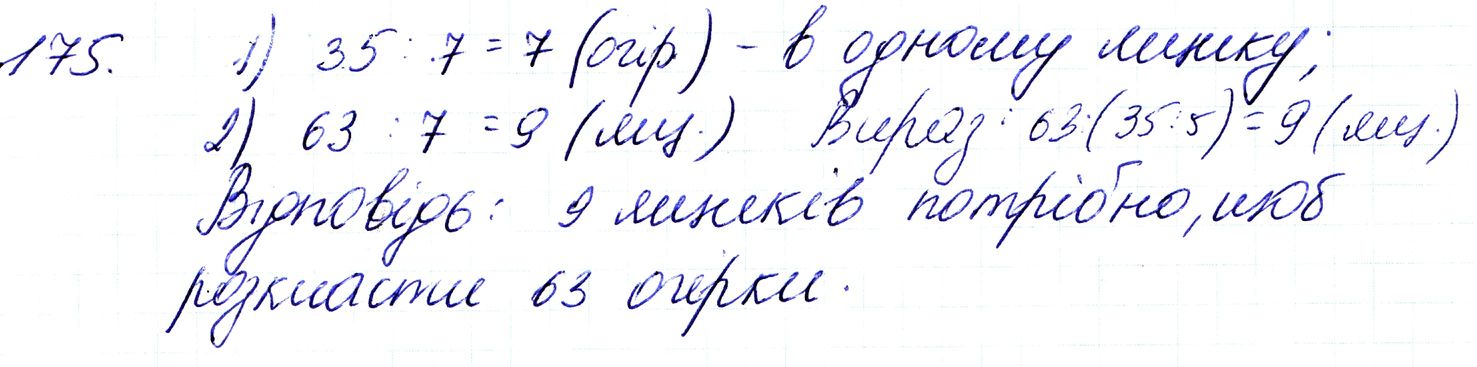 175. 1) 35 : 7 = 7 (огір.) - в одному ящику;
2) 63 : 7 = 9 (ящ.) Вираз: 63:(35:5) = 9 (ящ.)
Відповідь: 9 ящиків потрібно, щоб
розкласти 63 огірки.